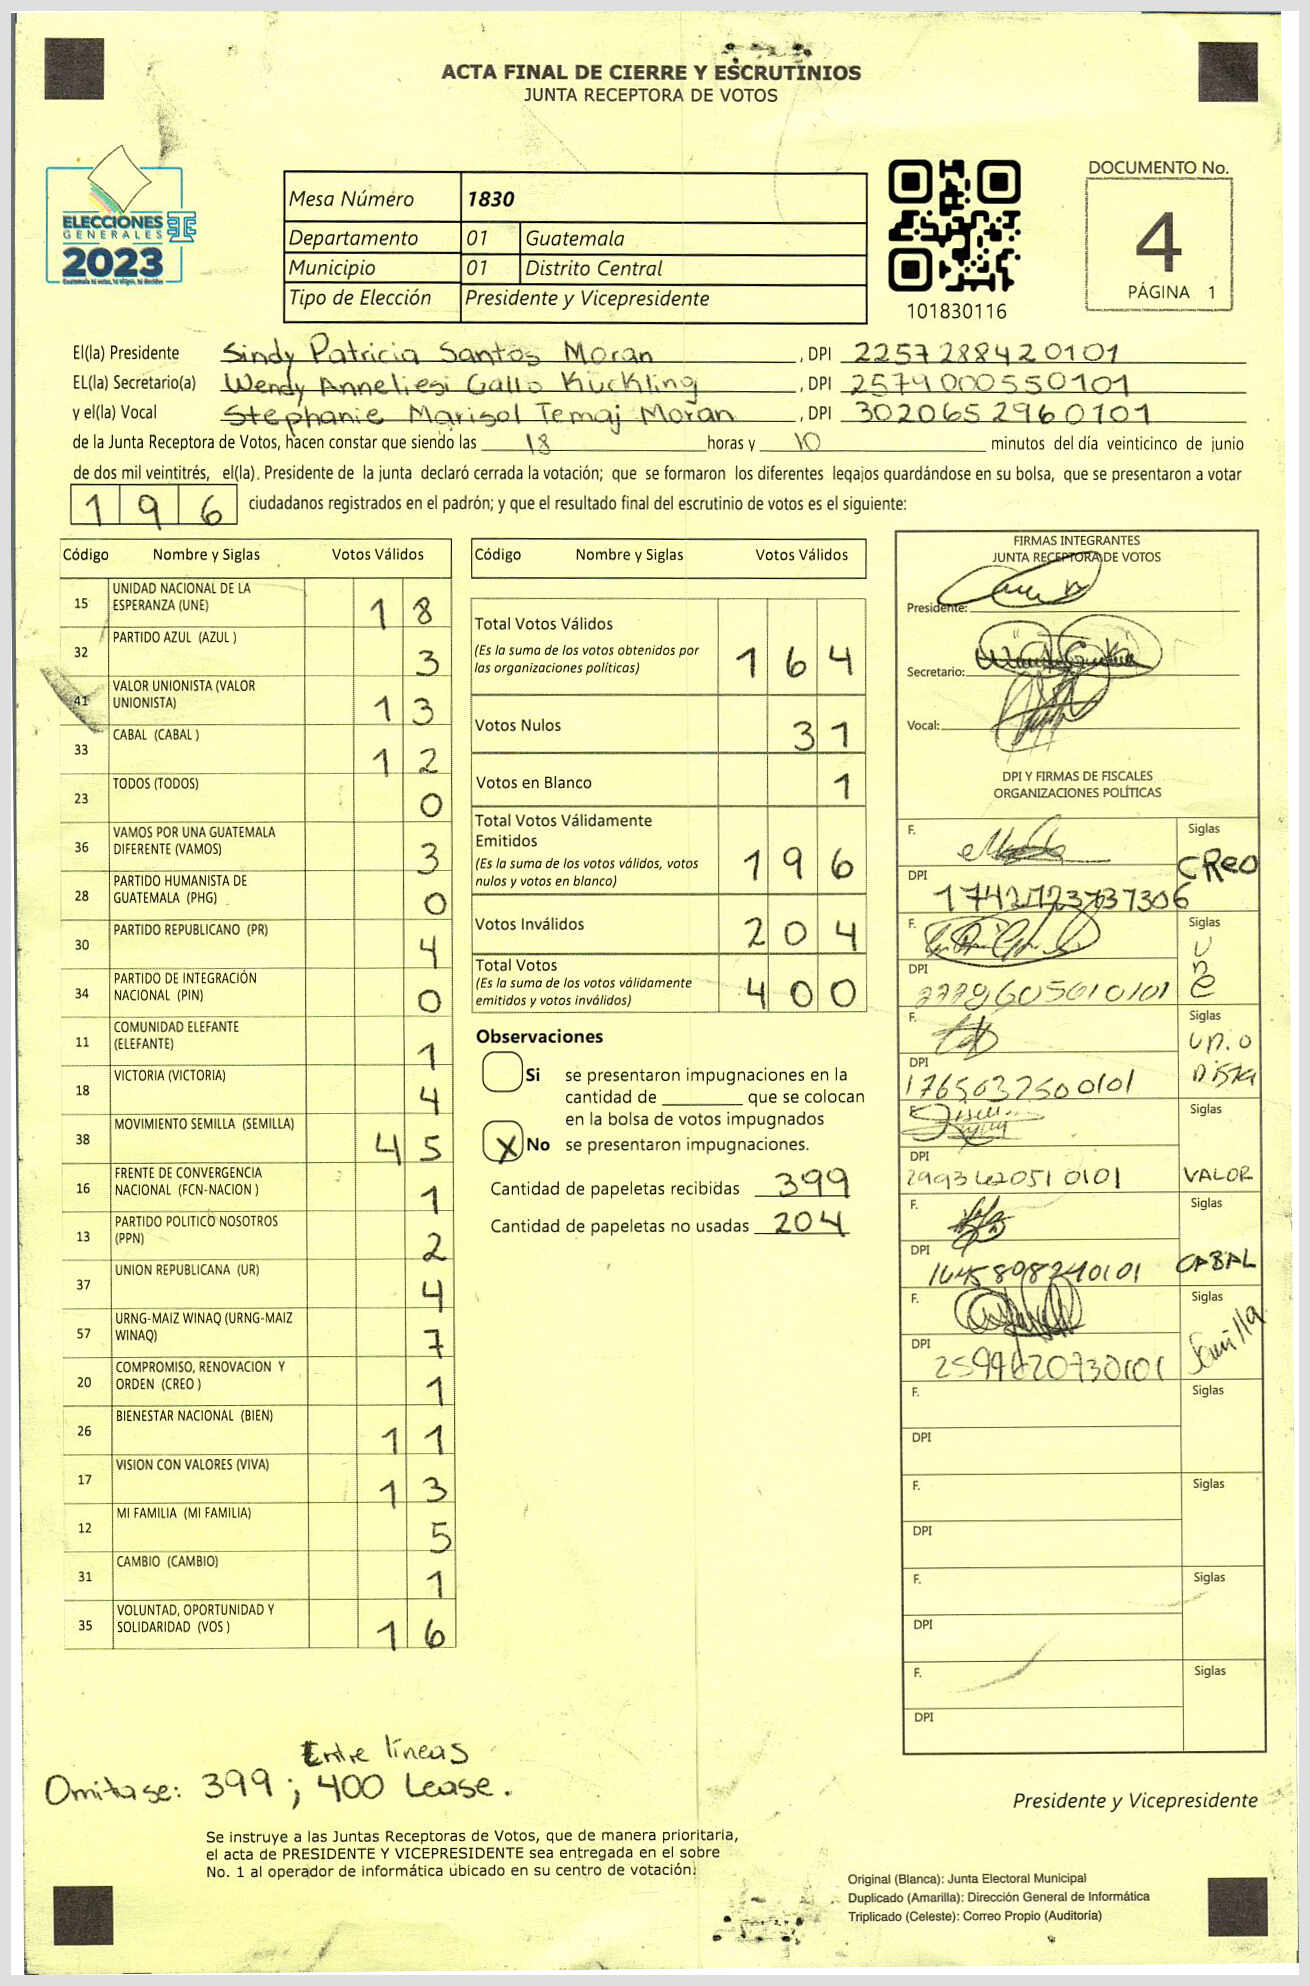 ACTA FINAL DE CIERRE Y ESCRUTINIOS
JUNTA RECEPTORA DE VOTOS
ELECCIONES
GENERALES
2023
Mesa Número 1830
Departamento 01 Guatemala
Municipio 01 Distrito Central
Tipo de Elección Presidente y Vicepresidente
101830116
DOCUMENTO No.
4
PÁGINA 1
El(la) Presidente Sindy Patricia Santos Moran , DPI 2257288420101
EL(la) Secretario(a) Wendy Anneliesi Gallo Kuckling , DPI 2579000550101
y el(la) Vocal Stephanie Marisol Temaj Moran , DPI 3020652960101
de la Junta Receptora de Votos, hacen constar que siendo las 18 horas y 10 minutos del día veinticinco de junio
de dos mil veintitrés, el(la). Presidente de la junta declaró cerrada la votación; que se formaron los diferentes legajos guardándose en su bolsa, que se presentaron a votar
196 ciudadanos registrados en el padrón; y que el resultado final del escrutinio de votos es el siguiente:
Código Nombre y Siglas Votos Válidos
15 UNIDAD NACIONAL DE LA ESPERANZA (UNE) 18
32 PARTIDO AZUL (AZUL ) 3
41 VALOR UNIONISTA (VALOR UNIONISTA) 13
33 CABAL (CABAL ) 12
23 TODOS (TODOS) 0
36 VAMOS POR UNA GUATEMALA DIFERENTE (VAMOS) 3
28 PARTIDO HUMANISTA DE GUATEMALA (PHG) 0
30 PARTIDO REPUBLICANO (PR) 4
34 PARTIDO DE INTEGRACIÓN NACIONAL (PIN) 0
11 COMUNIDAD ELEFANTE (ELEFANTE) 1
18 VICTORIA (VICTORIA) 4
38 MOVIMIENTO SEMILLA (SEMILLA) 45
16 FRENTE DE CONVERGENCIA NACIONAL (FCN-NACION ) 1
13 PARTIDO POLITICO NOSOTROS (PPN) 2
37 UNION REPUBLICANA (UR) 4
57 URNG-MAIZ WINAQ (URNG-MAIZ WINAQ) 7
20 COMPROMISO, RENOVACION Y ORDEN (CREO ) 1
26 BIENESTAR NACIONAL (BIEN) 11
17 VISION CON VALORES (VIVA) 13
12 MI FAMILIA (MI FAMILIA) 5
31 CAMBIO (CAMBIO) 1
35 VOLUNTAD, OPORTUNIDAD Y SOLIDARIDAD (VOS ) 16
Código Nombre y Siglas Votos Válidos
Total Votos Válidos 164
(Es la suma de los votos obtenidos por
las organizaciones políticas)
Votos Nulos 31
Votos en Blanco 1
Total Votos Válidamente
Emitidos 196
(Es la suma de los votos válidos, votos
nulos y votos en blanco)
Votos Inválidos 204
Total Votos 400
(Es la suma de los votos válidamente
emitidos y votos inválidos)
Observaciones
Si se presentaron impugnaciones en la
cantidad de ________ que se colocan
en la bolsa de votos impugnados
X No se presentaron impugnaciones.
Cantidad de papeletas recibidas 399
Cantidad de papeletas no usadas 204
FIRMAS INTEGRANTES
JUNTA RECEPTORA DE VOTOS
Presidente:
Secretario:
Vocal:
DPI Y FIRMAS DE FISCALES
ORGANIZACIONES POLÍTICAS
F. Siglas
CREO
DPI
F. Siglas
une
DPI
F. Siglas
unio
nista
DPI 1765032500101
F. Siglas
VALOR
DPI
F. Siglas
CABAL
DPI
F. Siglas
Semilla
DPI
F. Siglas
DPI
F. Siglas
DPI
F. Siglas
DPI
F. Siglas
DPI
Entre líneas
Omitase: 399 ; 400 Lease.
Presidente y Vicepresidente
Se instruye a las Juntas Receptoras de Votos, que de manera prioritaria,
el acta de PRESIDENTE Y VICEPRESIDENTE sea entregada en el sobre
No. 1 al operador de informática ubicado en su centro de votación.
Original (Blanca): Junta Electoral Municipal
Duplicado (Amarilla): Dirección General de Informática
Triplicado (Celeste): Correo Propio (Auditoria)